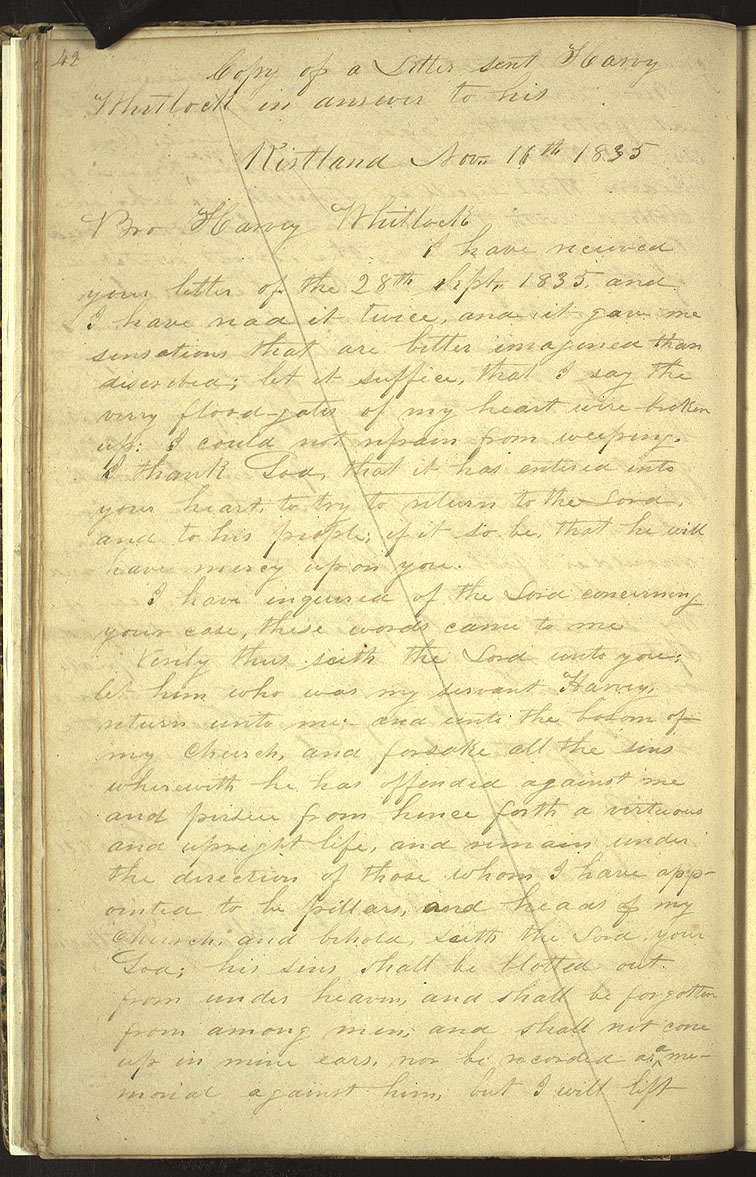 42
Copy of a Letter sent Harvy
Whitlock in answer to his
Kirtland Nov. 16th 1835
Bro Harvey Whitlock
I have recieved
your letter of the 28th Sept. 1835, and
I have read it twice, and it gave me
sensations that are better imagined than
discribed; let it suffice, that I say the
very flood-gates of my heart were broken
up: I could not refrain from weeping.
I thank God, that it has entered into
your heart, to try to return to the Lord,
and to his people; if it so be, that he will
have mercy upon you.
I have inquired of the Lord concerning
your case, these words came to me
Verily thus saith the Lord unto you;
let him who was my servant Harvey,
return unto me;- and unto the bosom of
my Church, and forsake all the sins
wherewith he has offended against me
and persue from hence forth a virtuous
and upright life, and remain under
the direction of those whom I have app-
ointed to be pillars, and heads of my
Church, and behold, saith the Lord, your
God; his sins shall be blotted out
from under heaven, and shall be forgotten
from among men, and shall not come
up in mine ears, nor be recorded as a me-
morial against him, but I will lift